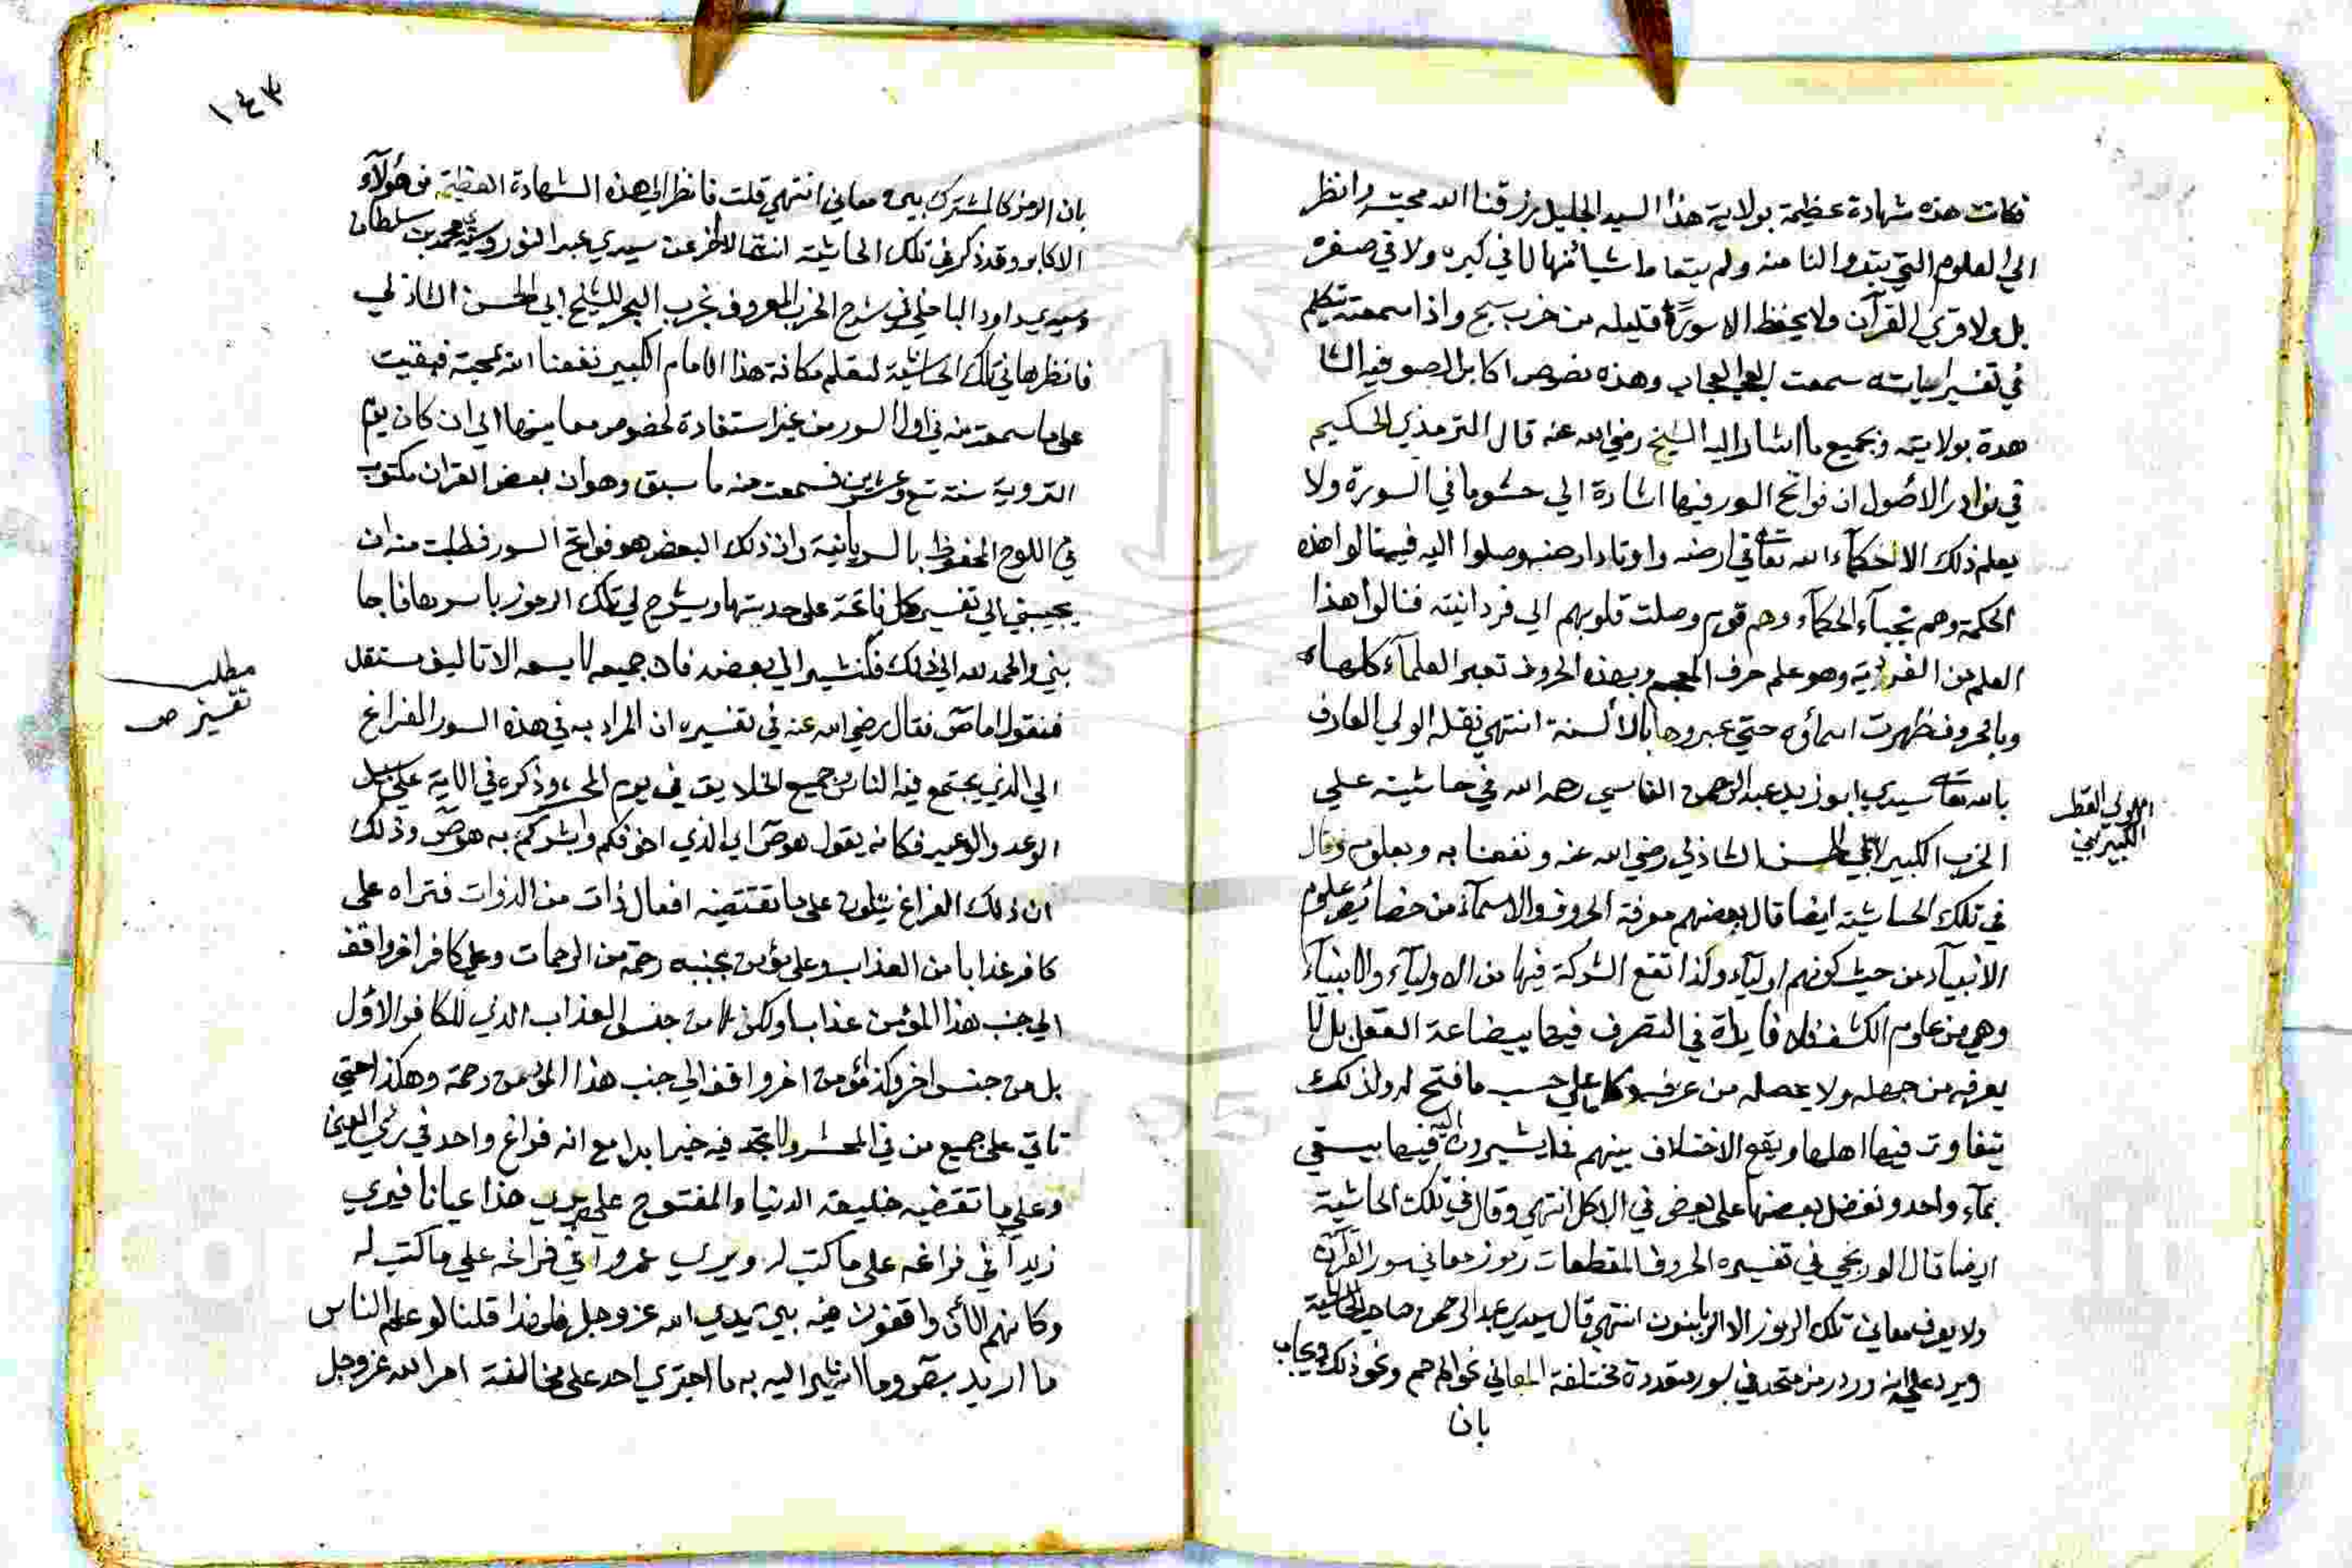 فكانت هذه شهادة عظيمة بولاية هذا السيد الجليل رزقنا الله محبته وانظر
الي العلوم التي بتدوا لنا منه ولم يتعاط شيأ منها لا في كبره ولا في صغره
بل ولا قرئ القرآن ولا يحفظ الا سورًا قليله من حزب سبح واذا سمعته يتكلم
في تفسير اياته سمعت العجب العجاب وهذه نصوص اكابر الصوفية الشا
هدة بولايته وبجميع ما اشار اليه الشيخ رضي الله عنه قال الترمذي الحكيم
في نوادر الاصول ان فواتح السور فيها اشارة الي حشو ما في السورة ولا
يعلم ذلك الا حكمآء الله تعالى في ارضه واوتاد ارضه وصلوا اليه فيه نالوا هذه
الحكمة وهم نجباء الحكمآء وهم قوم وصلت قلوبهم الي فردانيته فنالوا هذا
العلم من الفردية وهو علم حرف المعجم وبهذه الحروف تعبر العلمآء كلها
وبالحروف ظهرت اسمآؤه حتي عبروها بالألسنة انتهي نقله الولي العارف
بالله تعالى سيدي ابو زيد عبد الرحمن الفاسي رحمه الله في حاشيته علي
الحزب الكبير لابي الحسن الشاذلي رضي الله عنه ونفعنا به وبعلومه وقال
للولي القطب
الكبير ابي
في تلك الحاشية ايضا قال بعضهم معرفة الحروف والاسمآء من خصائص علوم
الانبيآء من حيث كونهم اوليآء ولذا تقع الشركة فيها من الاوليآء والانبيآء
وهي من علوم الكشف فلا فايدة في التصرف فيها ببضاعة العقل بل لا
يعرفه من جهله ولا يجهله من عرفه وكل علي حسب ما فتح له ولذلك
يتفاوت فيها اهلها ويقع الاختلاف بينهم فيما يشيرون اليه فيها يسقي
بمآء واحد ونفضل بعضها على بعض في الاكل انتهي وقال في تلك الحاشية
ايضا قال الورتجبي في تفسيره الحروف المقطعات رموز معاني سور القرآن
ولا يعرف معاني تلك الرموز الا الربانيون انتهي قال سيدي عبد الرحمن صاحب الحاشية
ويرد عليه انه ورد رمز متحد في سور متعددة مختلفة المعاني نحو الم حم ونحو ذلك ويجاب
بان
١٤٣
بان الرمز كالمشترك بين معاني انتهي قلت فانظر الي هذه الشهادة العظيمة من هؤلآء
الاكابر وقد ذكر في تلك الحاشية انتقالا اخر عن سيدي عبد النور وسيدي محمد بن سلطان
وسيدي داود الباخلي في شرح الحزب المعروف بحزب البحر للشيخ ابي الحسن الشاذلي
فانظرها في تلك الحاشية لتعلم مكانة هذا الامام الكبير نفعنا الله بمحبته فبقيت
على ما سمعت منه في اوائل السور من غير استفادة لخصوص معانيها الي ان كان يوم
التروية سنة تسع وعشرين فسمعت منه ما سبق وهو ان بعض القران مكتوب
في اللوح المحفوظ بالسريانية وان ذلك البعض هو فواتح السور فطلبت منه ان
يجيبني الي تفسير كل فاتحة على حدتها ويشرح لي تلك الرموز باسرها فاجا
بني والحمد لله الي ذلك فلنشير الي بعضه فان جميعه لا يسعه الا تاليف مستقل
مطلب
تفسير ص
فنقول اما صٓ فقال رضي الله عنه في تفسيره ان المراد به في هذه السور الفراغ
الي الذي يجتمع فيه الناس وجميع الخلايق في يوم المحشر وذكره في الاية على سبيل
الوعد والوعيد فكانه يقول هو صٓ اي الذي اخوفكم وابشركم به هو صٓ وذلك
ان ذلك الفراغ يتلون على ما تقتضيه افعال ذات من الذوات فتراه على
كافر عذابا من العذاب وعلى مؤمن بجنبه رحمة من الرحمات وعلي كافر اخر واقف
الي جنب هذا المؤمن عذاب اولكن لا من جنس العذاب الذي للكافر الاول
بل من جنس اخر وكذا مؤمن اخر واقف الي جنب هذا المؤمن رحمة وهكذا حتي
تاتي على جميع من في المحشر ولا تجد فيه حيزا ابدا مع انه فراغ واحد في راي العين
وعلي ما تقتضيه خليقة الدنيا والمفتوح عليه يري هذا عيانا فيري
زيداً في فراغه على ما كتب له ويري عمرواً في فراغه علي ما كتب له
وكانهم الآن واقفون فيه بين يدي الله عز وجل فلهذا قلنا لو علم الناس
ما اريد بصٓ وما اشير اليه به ما اجتري احد على مخالفة امر الله عز وجل